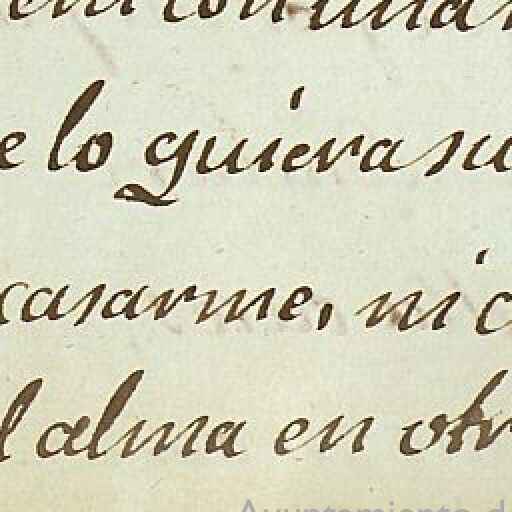 e lo quiera su
casarme, ni c
l alma en otr
Ayuntamiento de